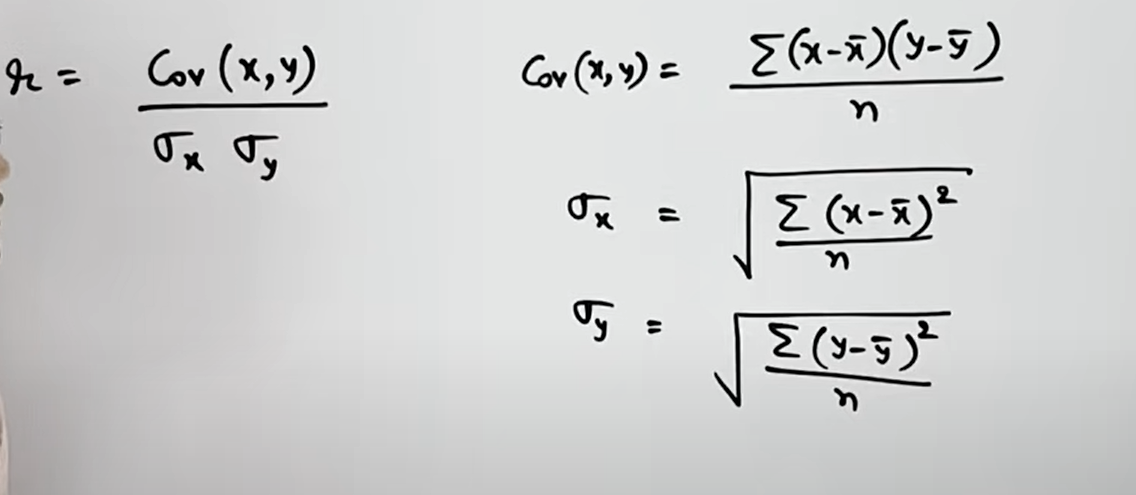 r = Cov (x, y) / σx σy
Cov (x, y) = Σ(x-x̄)(y-ȳ) / n
σx = √(Σ (x-x̄)² / n)
σy = √(Σ (y-ȳ)² / n)